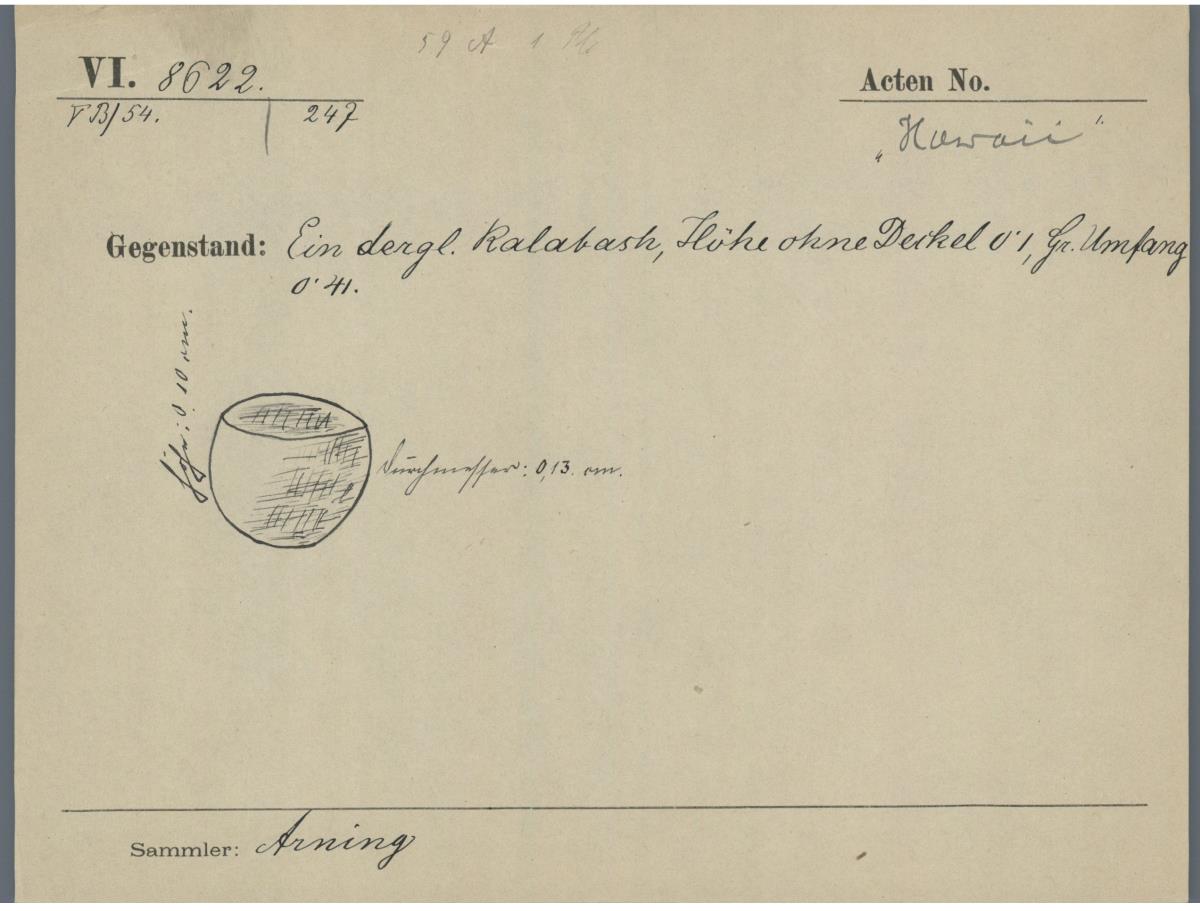 59 A 1
VI. 8622.
Acten No.
V B/54. 247
„Hawaii"
Gegenstand: Ein dergl. Kalabash, Höhe ohne Deckel 0'1, Gr. Umfang
0'41.
Höhe: 0 10 cm.
Durchmesser: 0,13. cm.
Sammler: Arning